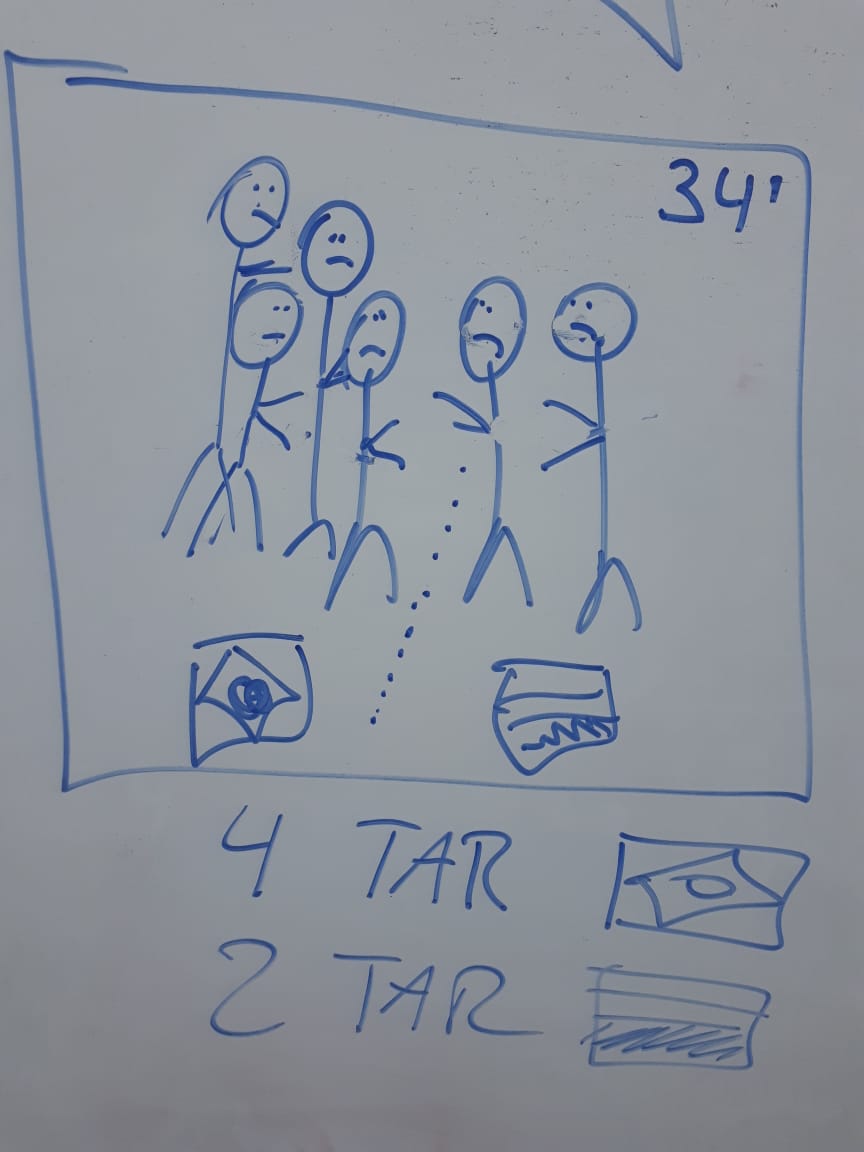 34'
4 TAR
2 TAR